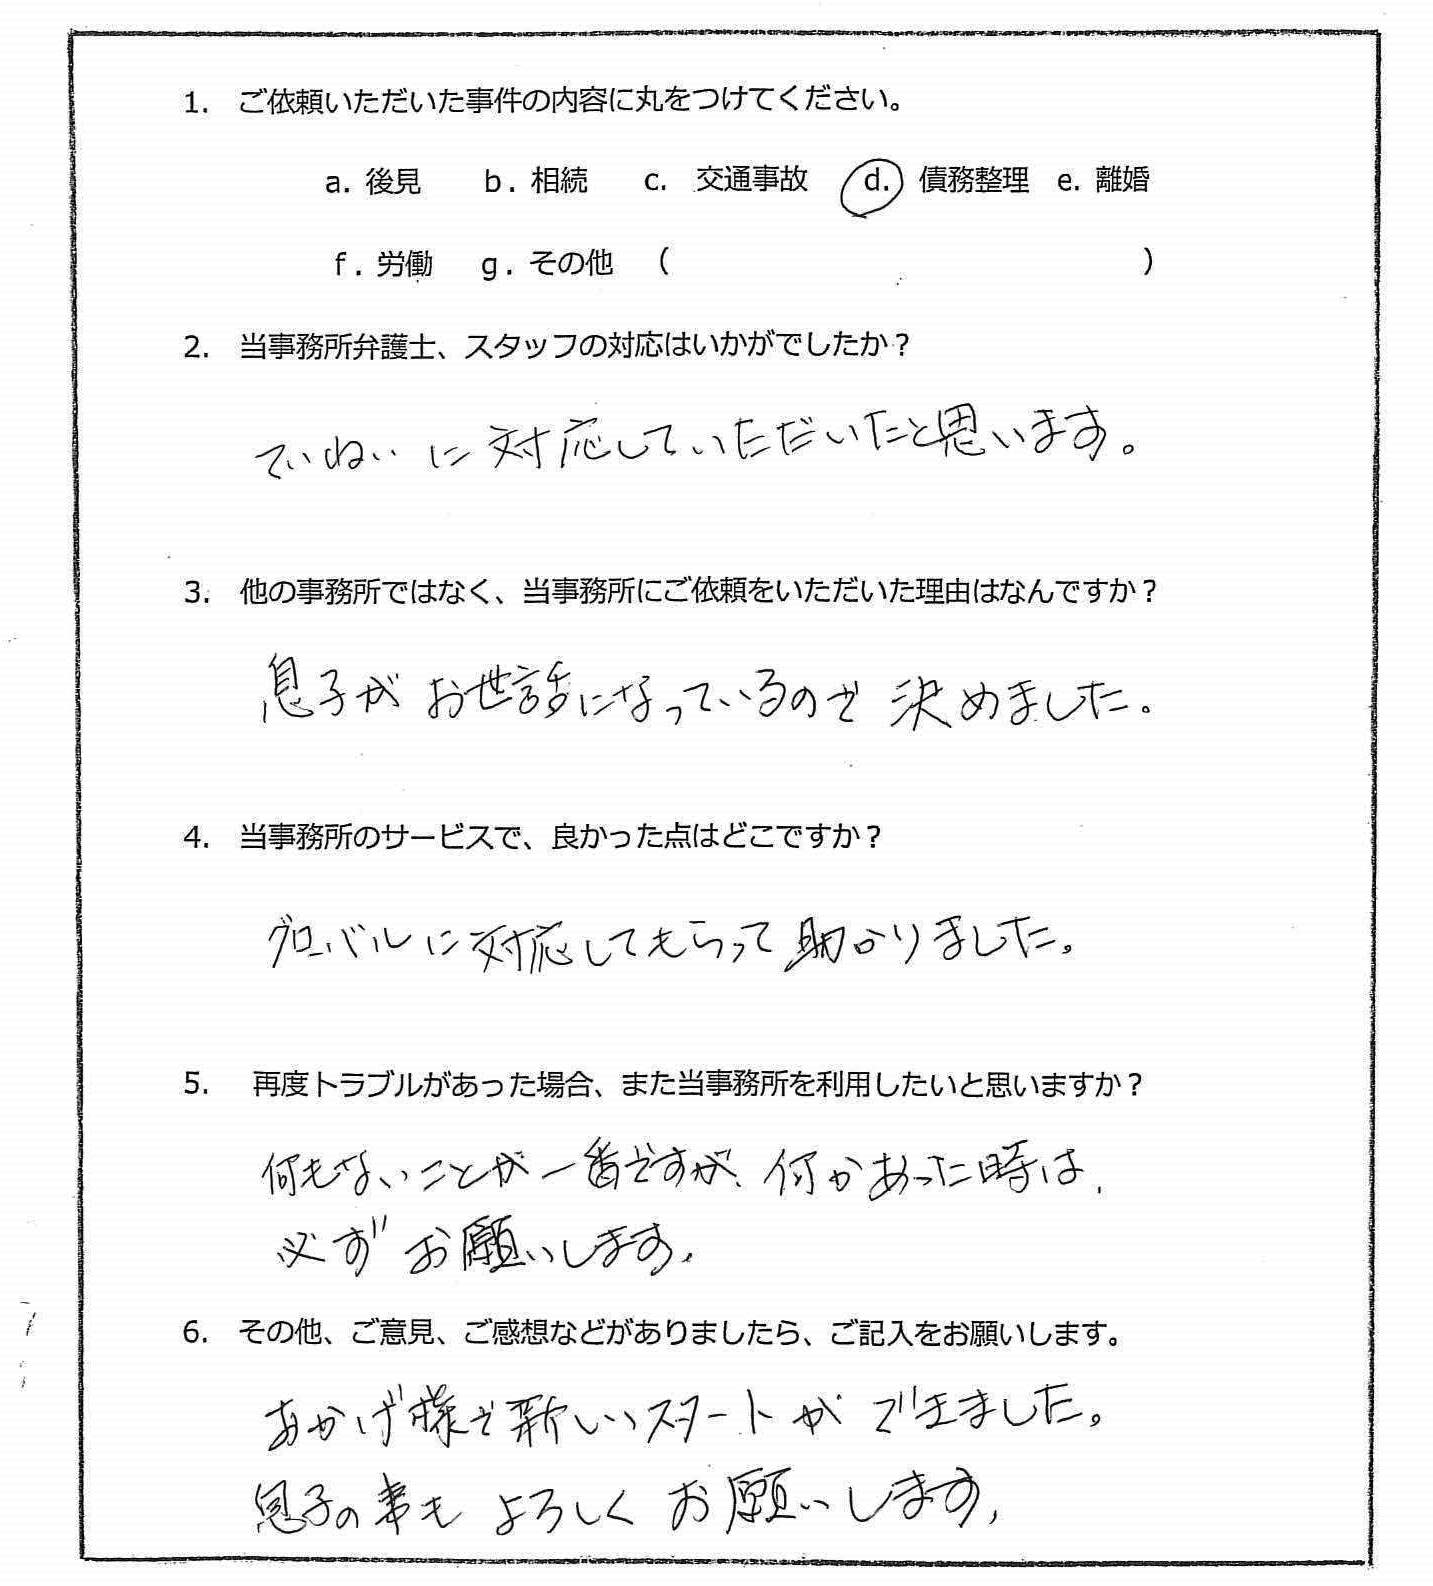 1. ご依頼いただいた事件の内容に丸をつけてください。
a. 後見 b. 相続 c. 交通事故 d. 債務整理 e. 離婚
f. 労働 g. その他 ( )
2. 当事務所弁護士、スタッフの対応はいかがでしたか？
ていねいに対応していただいたと思います。
3. 他の事務所ではなく、当事務所にご依頼をいただいた理由はなんですか？
息子がお世話になっているので決めました。
4. 当事務所のサービスで、良かった点はどこですか？
グローバルに対応してもらって助かりました。
5. 再度トラブルがあった場合、また当事務所を利用したいと思いますか？
何もないことが一番ですが、何かあった時は、
必ずお願いします。
6. その他、ご意見、ご感想などがありましたら、ご記入をお願いします。
おかげ様で新しいスタートができました。
息子の事もよろしくお願いします。